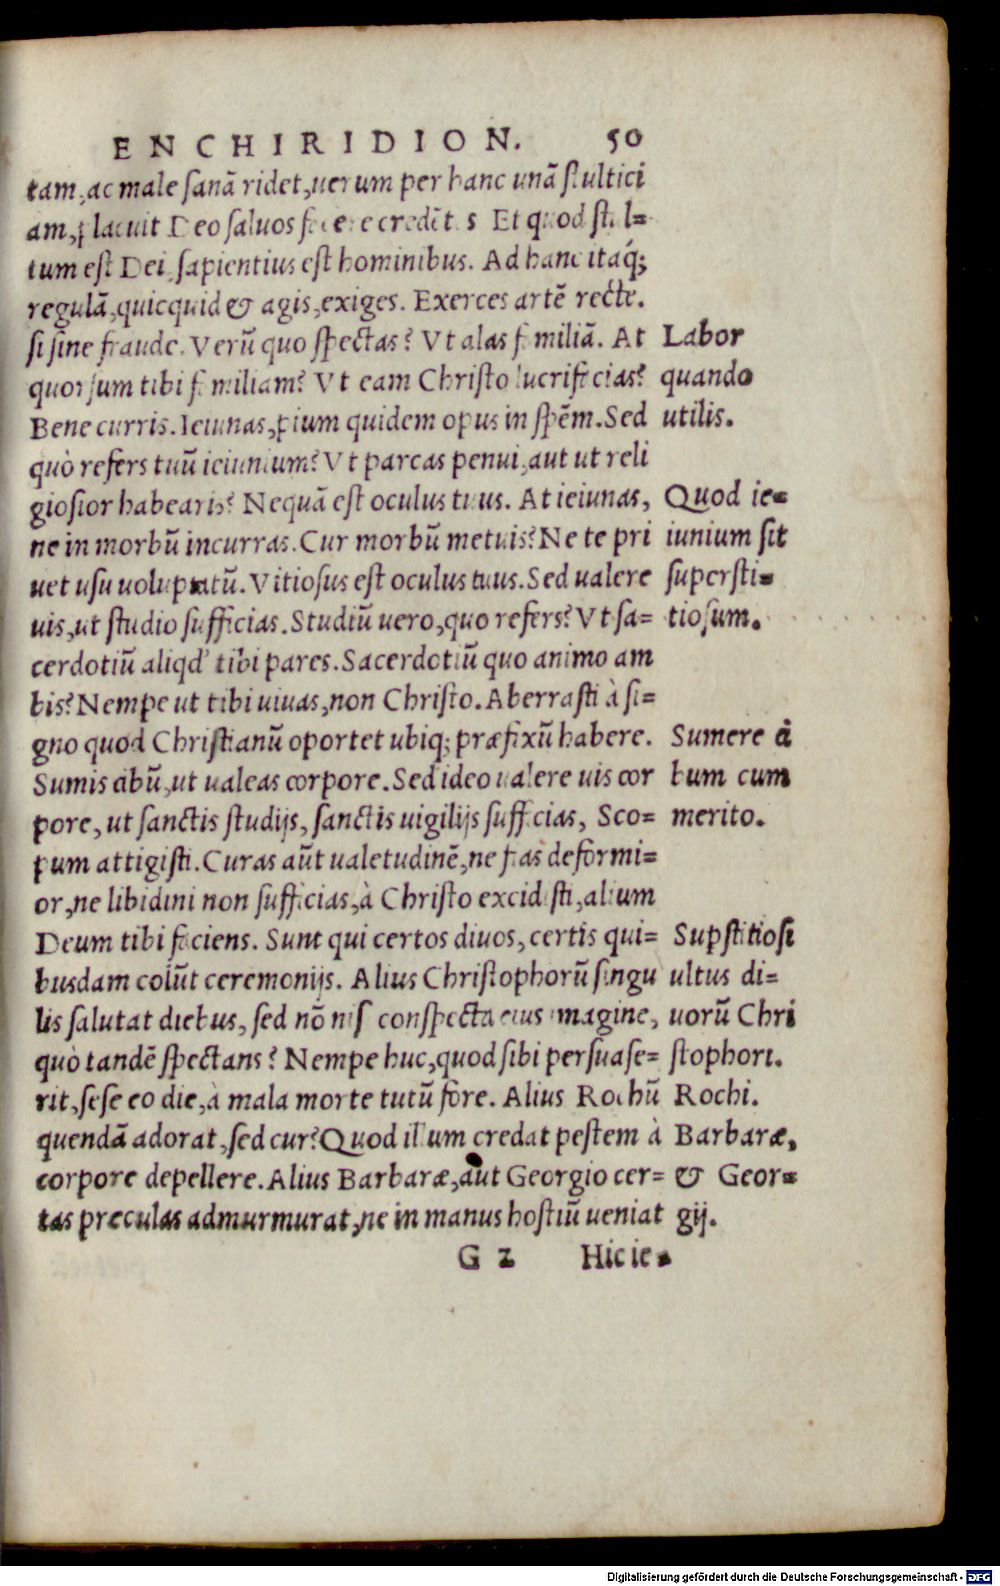 ENCHIRIDION. 50
tam, ac male sanā ridet, uerum per hanc unā stultici
am, placuit Deo saluos facere credētes Et quod stul=
tum est Dei, sapientius est hominibus. Ad hanc itaq́;
regulā, quicquid & agis, exiges. Exerces artē recte.
si sine fraude. Verū quo spectas? Vt alas familiā. At
Labor
quorsum tibi familiam? Vt eam Christo lucrificias?
quando
Bene curris. Ieiunas, pium quidem opus in spēm. Sed
utilis.
quò refers tuū ieiunium? Vt parcas penui, aut ut reli
giosior habearis? Nequā est oculus tuus. At ieiunas,
Quod ie=
ne in morbū incurras. Cur morbū metuis? Ne te pri
iunium sit
uet usu uoluptatū. Vitiosus est oculus tuus. Sed ualere
supersti=
uis, ut studio sufficias. Studiū uero, quo refers? Vt sa=
tiosum.
cerdotiū aliqd' tibi pares. Sacerdotiū quo animo am
bis? Nempe ut tibi uiuas, non Christo. Aberrasti à si=
gno quod Christianū oportet ubiq; præfixū habere.
Sumere ci
Sumis cibū, ut ualeas corpore. Sed ideo ualere uis cor
bum cum
pore, ut sanctis studijs, sanctis uigilijs sufficias, Sco=
merito.
pum attigisti. Curas aūt ualetudinē, ne fias deformi=
or, ne libidini non sufficias, à Christo excidisti, alium
Deum tibi faciens. Sunt qui certos diuos, certis qui=
Supstitiosi
busdam colūt ceremonijs. Alius Christophorū singu
ultus di=
lis salutat diebus, sed nō nisi conspecta eius imagine,
uorū Chri
quò tandē spectans? Nempe huc, quod sibi persuase=
stophori.
rit, sese eo die, à mala morte tutū fore. Alius Rochū
Rochi.
quendā adorat, sed cur? Quod illum credat pestem à
Barbaræ,
corpore depellere. Alius Barbaræ, aut Georgio cer=
& Geor=
tas preculas admurmurat, ne in manus hostiū ueniat
gij.
G 2 Hic ie=
Digitalisierung gefördert durch die Deutsche Forschungsgemeinschaft - DFG